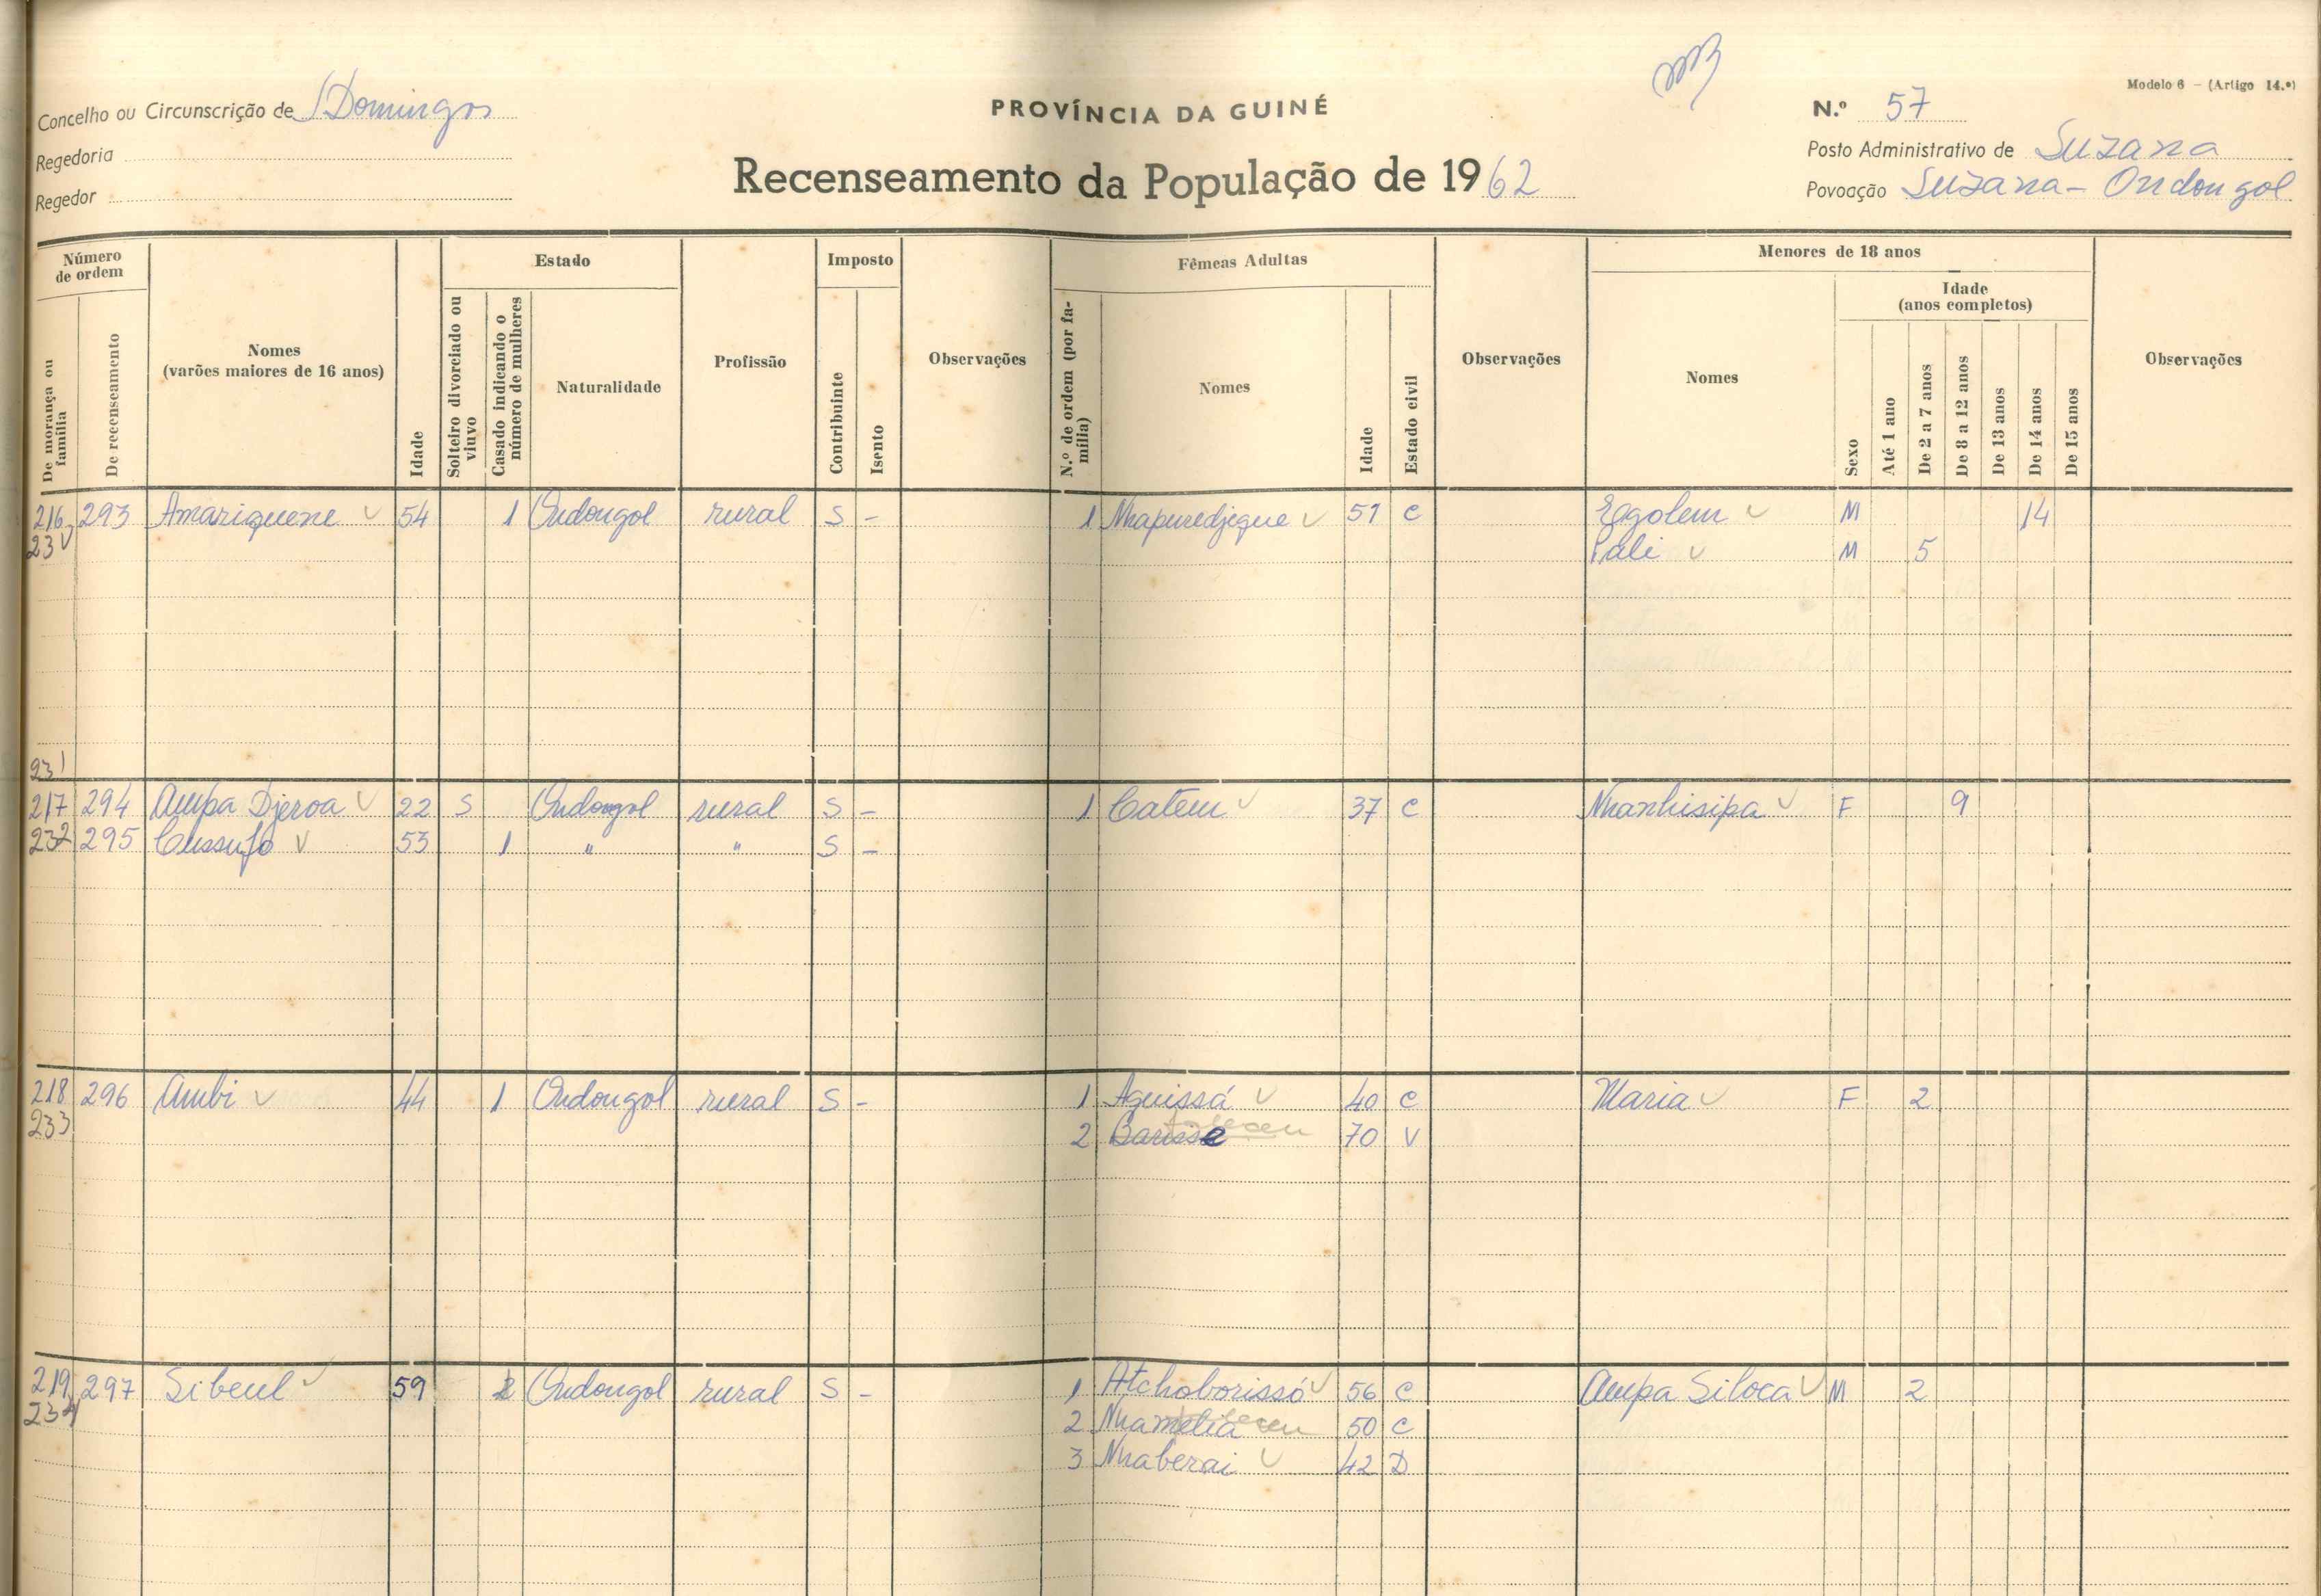 Modelo 6 – (Artigo 14.º)
Concelho ou Circunscrição de S/Domingos
PROVÍNCIA DA GUINÉ
N.º 57
Regedoria
Posto Administrativo de Suzana
Regedor
Recenseamento da População de 1962
Povoação Suzana - Ondongol
Número de ordem
De morança ou família
De recenseamento
Nomes
(varões maiores de 16 anos)
Idade
Estado
Solteiro divorciado ou viuvo
Casado indicando o número de mulheres
Naturalidade
Profissão
Imposto
Contribuinte
Isento
Observações
Fêmeas Adultas
N.º de ordem (por família)
Nomes
Idade
Estado civil
Observações
Menores de 18 anos
Nomes
Sexo
Idade
(anos completos)
Até 1 ano
De 2 a 7 anos
De 8 a 12 anos
De 13 anos
De 14 anos
De 15 anos
Observações
216 293 Amariquene 54 1 Ondongol rural S - 1 Nhapuredjeque 51 C Egolem M 14
23 Pali M 5
231
217 294 Ampa Djeroa 22 S Ondongol rural S - 1 Catem 37 C Nhanhisipa F 9
232 295 Cussufo 53 1 " " S -
218 296 Ambi 44 1 Ondongol rural S - 1 Aguissá 40 C Maria F 2
233 2 Barisse faleceu 70 V
219 297 Sibeul 59 2 Ondongol rural S - 1 Atchoborissó 56 C Ampa Siloca M 2
234 2 Nhamelia faleceu 50 C
3 Nhaberai 42 D